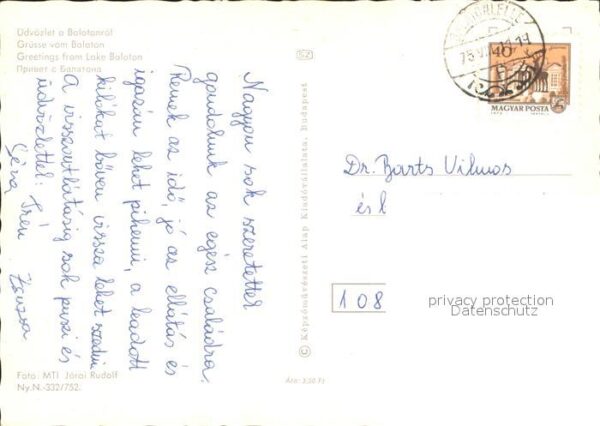 Üdvözlet a Balatonról
Grüsse vom Balaton
Greetings from Lake Balaton
Привет с Балатона
Nagyon sok szeretettel
gondolunk az egész családra.
Remek az idő, jó az ellátás és
igazán lehet pihenni, a leadott
kilókat bőven vissza lehet szedni.
A viszontlátásig sok puszi és
üdvözlettel:
Irén Zsuzsa
Foto: MTI Járai Rudolf
Ny.N.-332/752.
© Képzőművészeti Alap Kiadóvállalata, Budapest
Ára: 2,50 Ft
MAGYAR POSTA
Dr. Barts Vilmos
és
108
privacy protection
Datenschutz